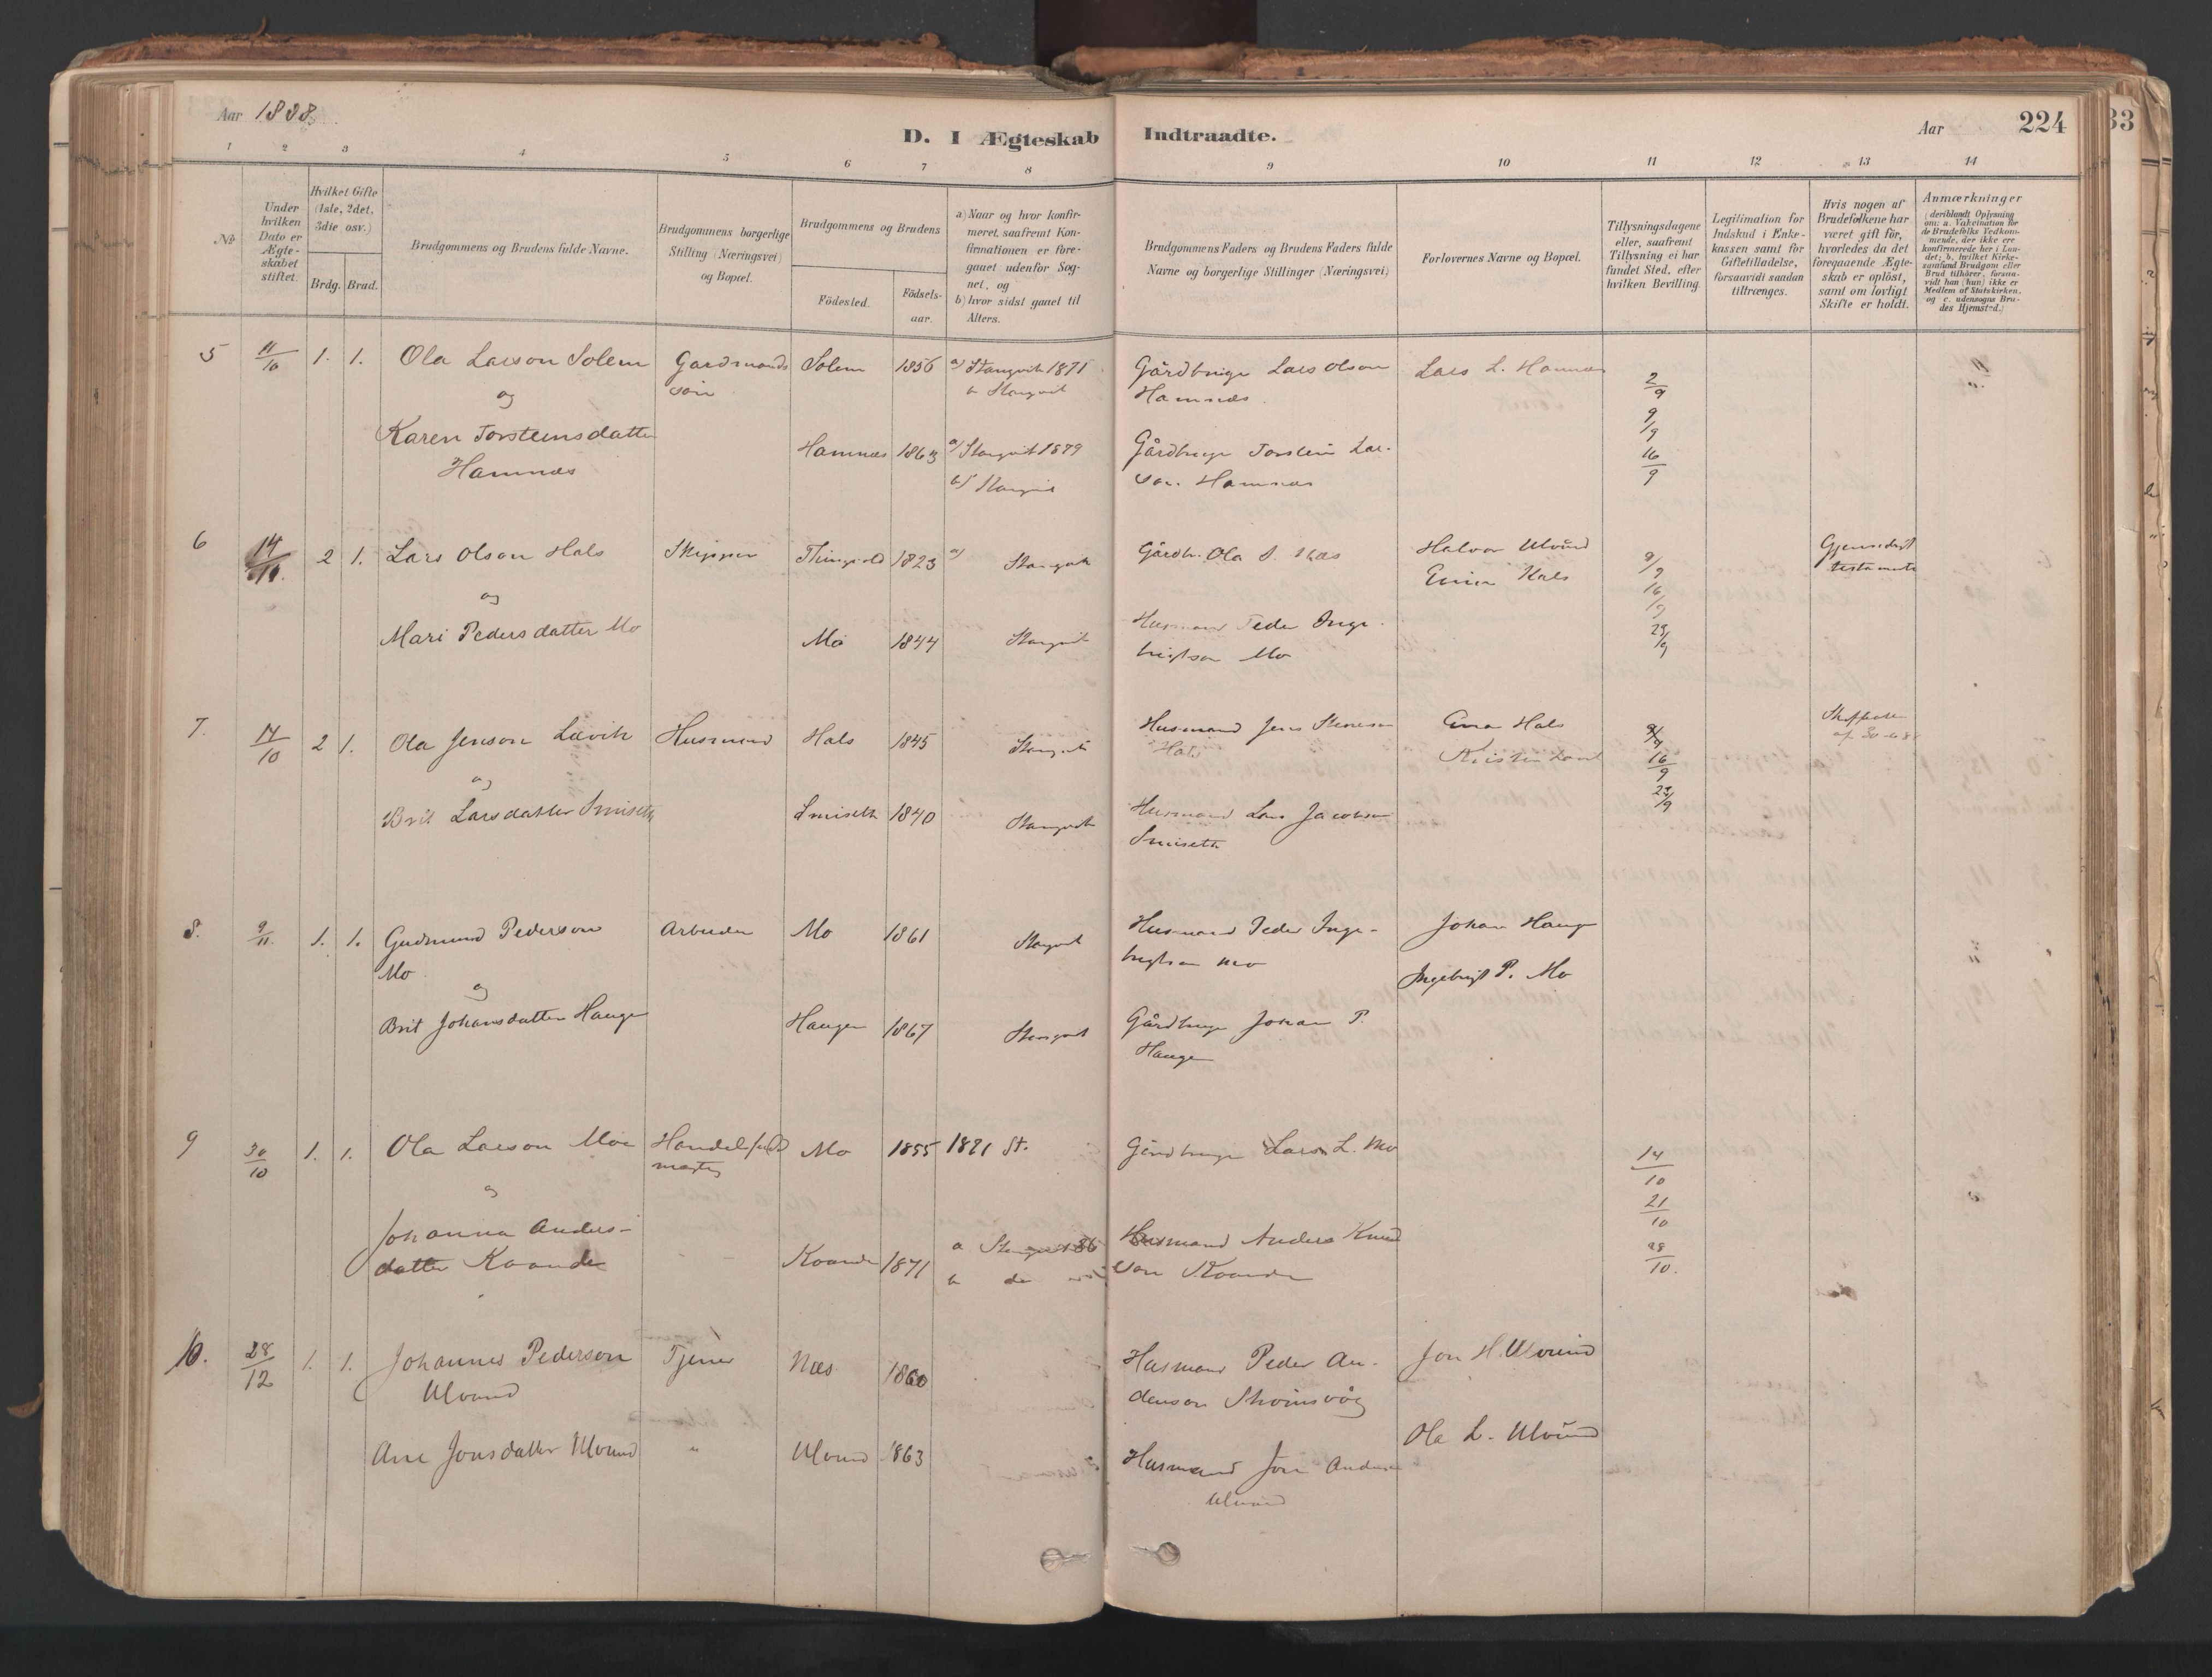 Aar 1888.
D. I Ægteskab Indtraadte.
Aar 224
33
1 2 3 4 5 6 7 8 9 10 11 12 13 14
No
Under hvilken Dato er Ægteskabet stiftet.
Hvilket Gifte (1ste, 2det, 3die osv.)
Brdg. Brud.
Brudgommens og Brudens fulde Navne.
Brudgommens borgerlige Stilling (Næringsvei) og Bopæl.
Brudgommens og Brudens
Födested.
Födsels-aar.
a) Naar og hvor konfirmeret, saafremt Konfirmationen er foregaaet udenfor Sognet, og
b) hvor sidst gaaet til Alters.
Brudgommens Faders og Brudens Faders fulde Navne og borgerlige Stillinger (Næringsvei)
Forlovernes Navne og Bopæl.
Tillysningsdagene eller, saafremt Tillysning ei har fundet Sted, efter hvilken Bevilling.
Legitimation for Indskud i Enkekassen samt for Giftetilladelse, forsaavidt saadan tiltrænges.
Hvis nogen af Brudefolkene har været gift för, hvorledes da det foregaaende Ægteskab er oplöst, samt om lovligt Skifte er holdt.
Anmærkninger
(deriblandt Oplysning om: a. Vakcination for de Brudefolks Vedkommende, der ikke ere konfirmerede her i Landet; b. hvilket Kirkesamfund Brudgom eller Brud tilhörer, forsaavidt han (hun) ikke er Medlem af Statskirken, og c. udensogns Brudes Hjemsted.)
5 11/10 1. 1. Ola Larson Solem Gardmands Solem 1856 a) Stangvik 1871 Gårdbruge Lars Olson Lars L. Hamnæs 2/9
og søn b Stangvik Hamnæs. 9/9
Karen Torsteinsdatter Hamnæs 1863 a) Stangvik 1879 Gårdbruge Torstein Lar- 16/9
Hamnæs b) Stangvik son Hamnæs
6 14/10. 2 1. Lars Olson Hals Skipper Thingvold 1823 a) Stangvik Gårdb. Ola Halvor Ulvund 9/9 Gjensidigt
og Hals 16/9 testamente
Mari Pedersdatter Mo Mo 1844 Stangvik Husmand Peder Inge- 23/9
brigtson Mo
7. 14/10 2 1. Ola Jenson Løvik Husmand Hals 1845 Stangvik Husmand Jens Hals 9/9
og Hals Kristen 16/9 af 30-6 88
Brit Larsdatter Smiseth Smiseth 1840 Stangvik Husmand Lars Jacobson 23/9
Smiseth
8. 9/11. 1. 1. Gudmund Pederson Arbeider Mo 1861 Stangvik Husmand Peder Inge- Johan Hauge
Mo brigtson Mo Ingebrigt P. Mo
og
Brit Johansdatter Haugen Haugen 1867 Stangvik Gårdbruge Johan P.
Haugen
9 30/10 1. 1. Ola Larson Moe Handelsfuld Mo 1855 1871 St. Gårdbruge Lars L. Mo 14/10
og mægtig 21/10
Johanna Anders- Kvande 1871 a Stangvik 86 Husmand Anders Knud 28/10.
datter Kvande b do son Kvande
10. 28/12 1. 1. Johannes Pederson Tjener Næs 1860 Husmand Peder An- Jon H. Ulvund
Ulvund derson
Ane Jonsdatter Ulvund " Ulvund 1863 Husmand Jon Anders Ola L. Ulvund
Ulvund